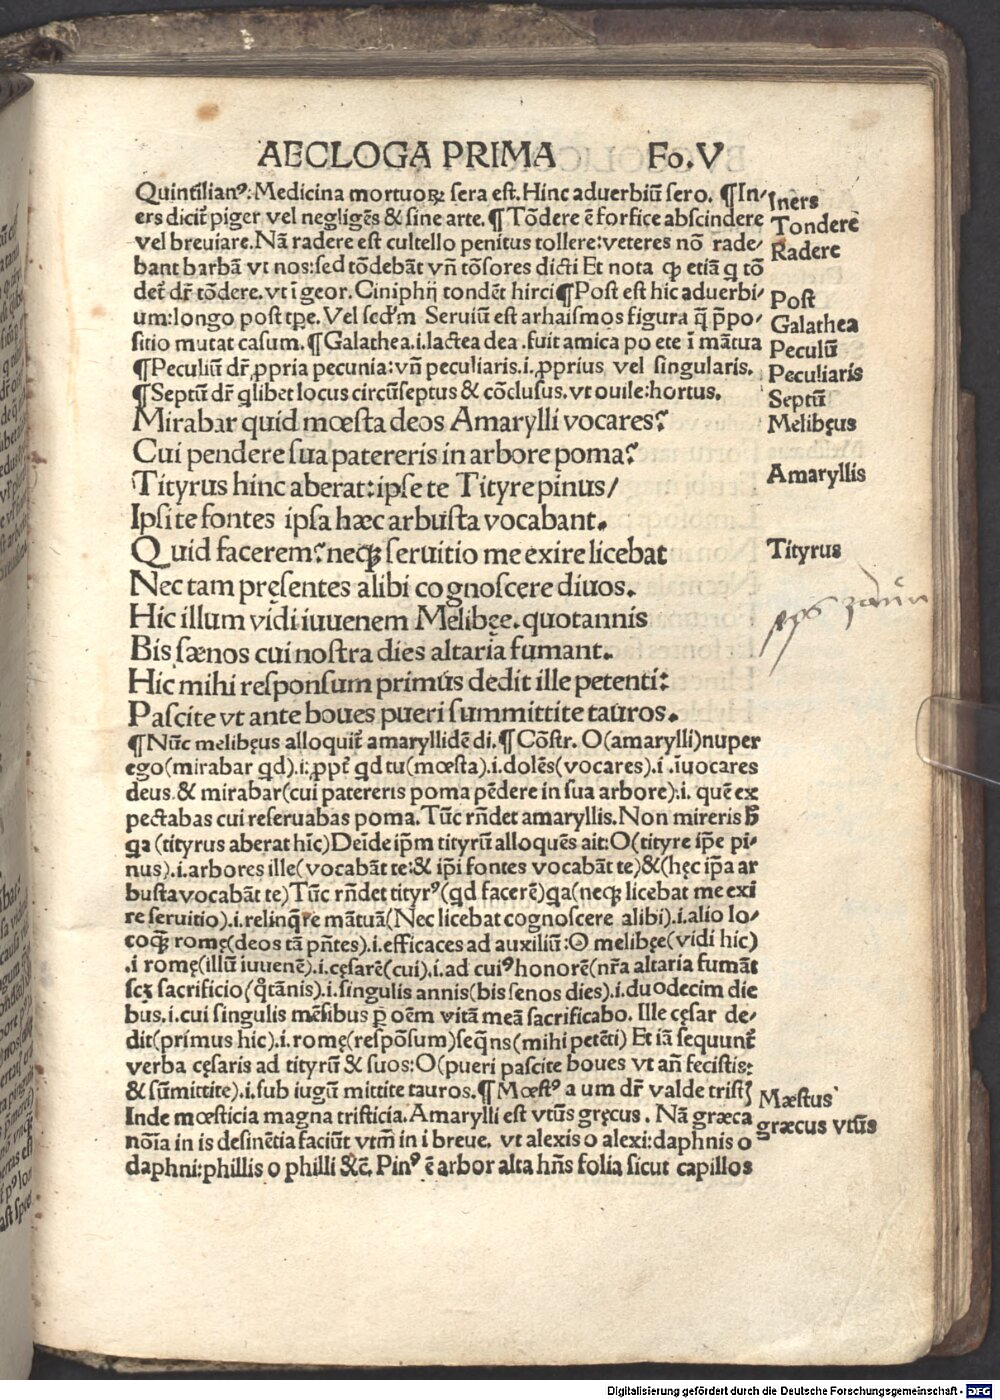 AECLOGA PRIMA Fo.V
Quintilianꝰ: Medicina mortuoꝝ sera est. Hinc aduerbiũ sero. ¶In⸗
ers dicit̃ piger vel negligẽs & sine arte. ¶Tõdere ẽ forfice abscindere
vel breuiare. Nã radere est cultello penitus tollere: veteres nõ rade⸗
bant barbã vt nos: sed tõdebãt vñ tõsores dicti Et nota ꝙ etiã q tõ
det̃ dr̃ tõdere. vt ĩ geor. Ciniphij tondẽt hirci ¶Post est hic aduerbi⸗
um: longo post tp̃e. Vel scd'm Seruiũ est arhaismos figura q̃ p̃po⸗
sitio mutat casum. ¶Galathea .i. lactea dea .fuit amica po ete ĩ mãtua
¶Peculiũ dr̃ ꝓpria pecunia: vñ peculiaris .i. ꝓprius vel singularis.
¶Septũ dr̃ qlibet locus circũseptus & cõclusus. vt ouile: hortus.
Mirabar quid mœsta deos Amarylli vocares?
Cui pendere sua patereris in arbore poma?
Tityrus hinc aberat: ipse te Tityre pinus/
Ipsi te fontes ipsa hæc arbusta vocabant.
Quid facerem? neqꝫ seruitio me exire licebat
Nec tam pręsentes alibi cognoscere diuos.
Hic illum vidi iuuenem Melibęe. quotannis
Bis sænos cui nostra dies altaria fumant.
Hic mihi responsum primus dedit ille petenti:
Pascite vt ante boues pueri summittite tauros.
¶Nũc melibęus alloquit̃ amaryllidẽ di. ¶Cõstr. O(amarylli)nuper
ego(mirabar qd).i. ꝓpt̃ qd tu(mœsta).i. dolẽs(vocares).i. ĩuocares
deus. & mirabar(cui patereris poma pẽdere in sua arbore):i. quẽ ex
pectabas cui reseruabas poma. Tũc rñdet amaryllis. Non mireris h̃
qa (tityrus aberat hĩc)Deĩde ip̃m tityrũ alloquẽs ait: O(tityre ip̃e pi⸗
nus).i. arbores ille(vocabãt te: & ip̃i fontes vocabãt te)&(hęc ip̃a ar
busta vocabãt te)Tũc rñdet tityrꝰ(qd facerẽ)qa(neqꝫ licebat me exi
re seruitio).i. relinq̃re mãtuã(Nec licebat cognoscere alibi).i. alio lo⸗
coqꝫ romę(deos tã pñtes).i. efficaces ad auxiliũ: O melibęe(vidi hic)
.i romę(illũ iuuenẽ).i. cęsarẽ(cui).i. ad cuiꝰ honorẽ(nr̃a altaria fumãt
scꝫ sacrificio(q̃tãnis).i. singulis annis(bis senos dies).i. duodecim die
bus .i. cui singulis mẽsibus p̃ oẽm vitã meã sacrificabo. Ille cęsar de⸗
dit(primus hic).i. romę(respõsum)seq̃ns(mihi petẽti) Et iã sequunt̃
verba cęsaris ad tityrũ & suos: O(pueri pascite boues vt añ fecistis:
& sũmittite).i. sub iugũ mittite tauros. ¶Mœstꝰ a um dr̃ valde tristꝭ
Inde mœsticia magna tristicia. Amarylli est vtũs gręcus. Nã græca
noĩa in is desinẽtia faciũt vtm̃ in i breue. vt alexis o alexi: daphnis o
daphni: phillis o philli &c̃. Pinꝰ ẽ arbor alta hñs folia sicut capillos
Iners
Tonderẽ
Radere
Post
Galathea
Peculũ
Peculiaris
Septũ
Melibęus
Amaryllis
Tityrus
Mæstus
græcus vtũs
Digitalisierung gefördert durch die Deutsche Forschungsgemeinschaft - DFG